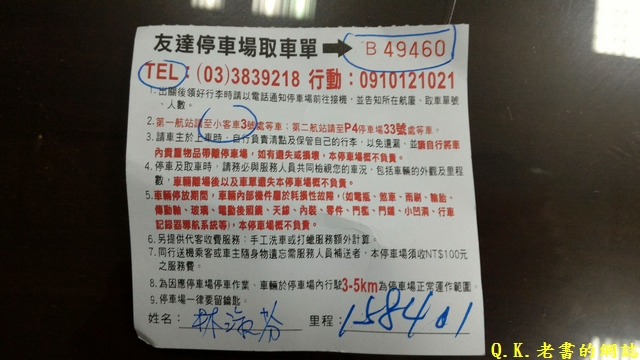 友達停車場取車單 → B 49460
TEL：(03)3839218 行動：0910121021
1.出關後領好行李時請以電話通知停車場前往接機，並告知所在航廈、取車單號
、人數。
2.第一航站請至小客車3號處等車；第二航站請至P4停車場33號處等車。
3.請車主於上車時，自行負責清點及保管自己的行李，以免遺漏、並請自行將車
內貴重物品帶離停車場，如有遺失或損壞，本停車場概不負責。
4.停車及取車時，請務必與服務人員共同檢視您的車況，包括車輛的外觀及里程
數，車輛離場後以及車單遺失本停車場概不負責。
5.車輛停放期間，車輛內部機件屬於耗損性故障，(如電瓶、煞車、雨刷、輪胎、
傳動軸、玻璃、電動後照鏡、天線、內裝、零件、門檻、門鎖、小凹洞、行車
記錄器導航系統等)，本停車場概不負責。
6.另提供代客收費服務：手工洗車或打蠟服務額外計算。
7.同行送機乘客或車主隨身物遺忘需服務人員補送者，本停車場須收NT$100元
之服務費。
8.為因應停車場停車作業、車輛於停車場內行駛3-5km為停車場正常運作範圍。
9.停車場一律要留鑰匙。
姓名：林 芬 里程：158401
Q.K.老書的網站